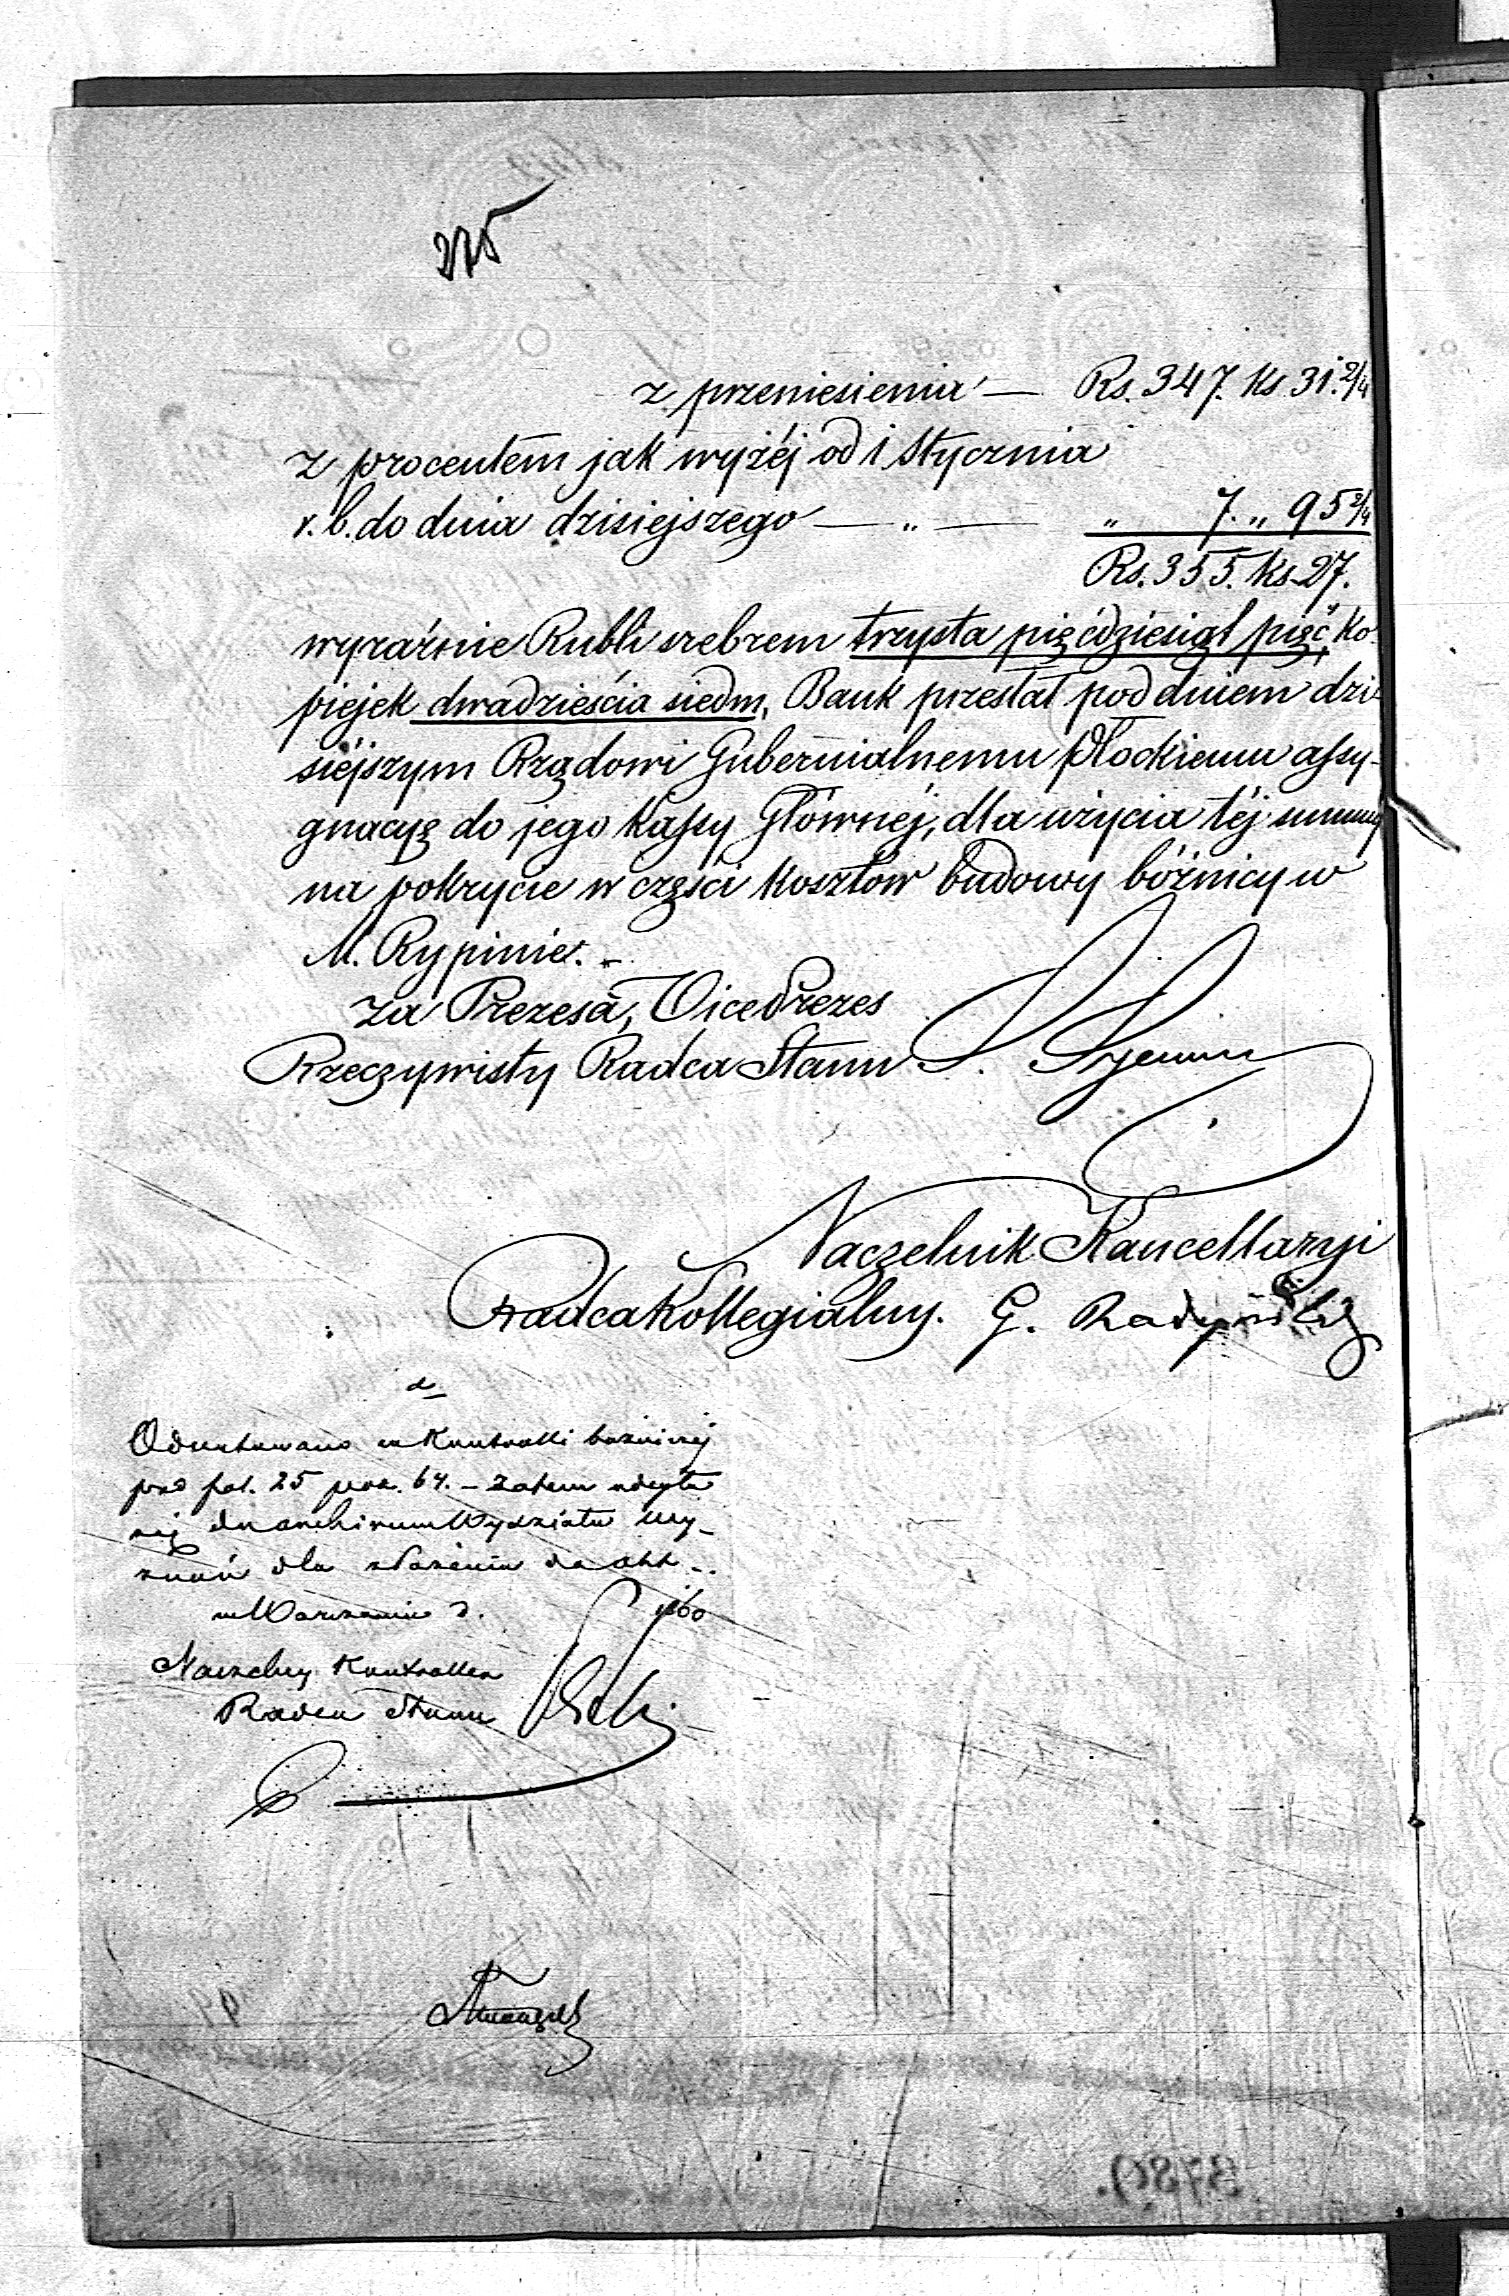 275
z przeniesienia — Rs. 347. Ks 31. 2/4
z procentem jak wyżéj od 1 Stycznia
r. b. do dnia dzisiejszego — „ — „ 7. „ 95 2/4
Rs. 355. Ks. 27.
wyraźnie Rubli srebrem trzysta pięćdziesiąt pięć, ko-
piejek dwadzieścia siedm, Bank przesłał pod dniem dzi-
siejszym Rządowi Gubernialnemu Płockiemu assy-
gnacyę do jego Kassy Głównéj, dla użycia téj summy
na pokrycie w części kosztów budowy bóżnicy w
M. Rypinie. -
za Prezesa, VicePrezes
Rzeczywisty Radca Stanu
Naczelnik Kancellaryi
Radca Kollegialny. G.
Odnotowano w Kontrolli
pod fol. 25 poz. 64. – zatem
się do archiwum Wydziału Wy-
znań dla złożenia do akt
w Warszawie d. 1860
Naczelny Kontroller
Radca Stanu
3780.